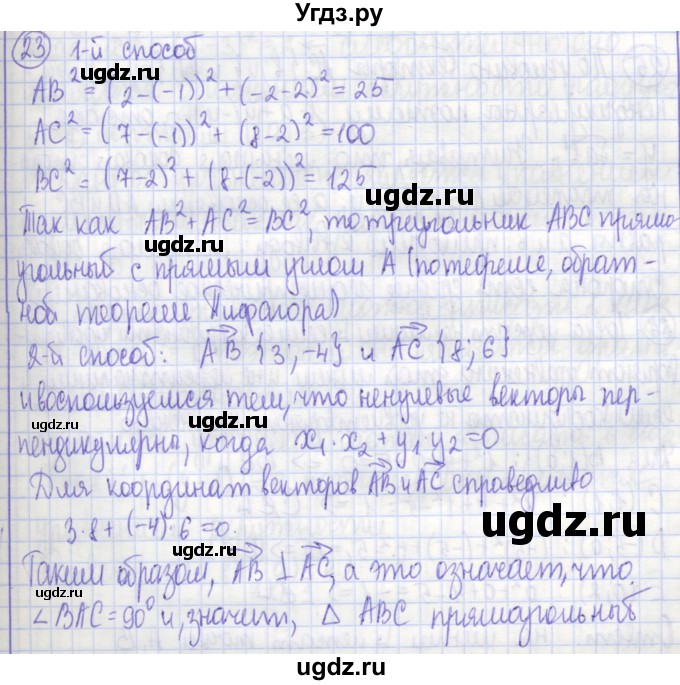 Угдз.ру
23 1-й способ
AB² = (2-(-1))² + (-2-2)² = 25
AC² = (7-(-1))² + (8-2)² = 100
BC² = (7-2)² + (8-(-2))² = 125
Так как AB² + AC² = BC², то треугольник ABC прямо-
угольный с прямым углом A (по теореме, обрат-
ной теореме Пифагора)
2-й способ: AB {3; -4} и AC {8; 6}
и воспользуемся тем, что ненулевые векторы пер-
пендикулярны, когда x₁·x₂ + y₁·y₂ = 0
Для координат векторов AB и AC справедливо
3·8 + (-4)·6 = 0.
Таким образом, AB ⊥ AC, а это означает, что
∠BAC = 90° и, значит, △ ABC прямоугольный
ugdz.ru
ugdz.ru
ugdz.ru
ugdz.ru
ugdz.ru
ugdz.ru
ugdz.ru
ugdz.ru
ugdz.ru
ugdz.ru
ugdz.ru